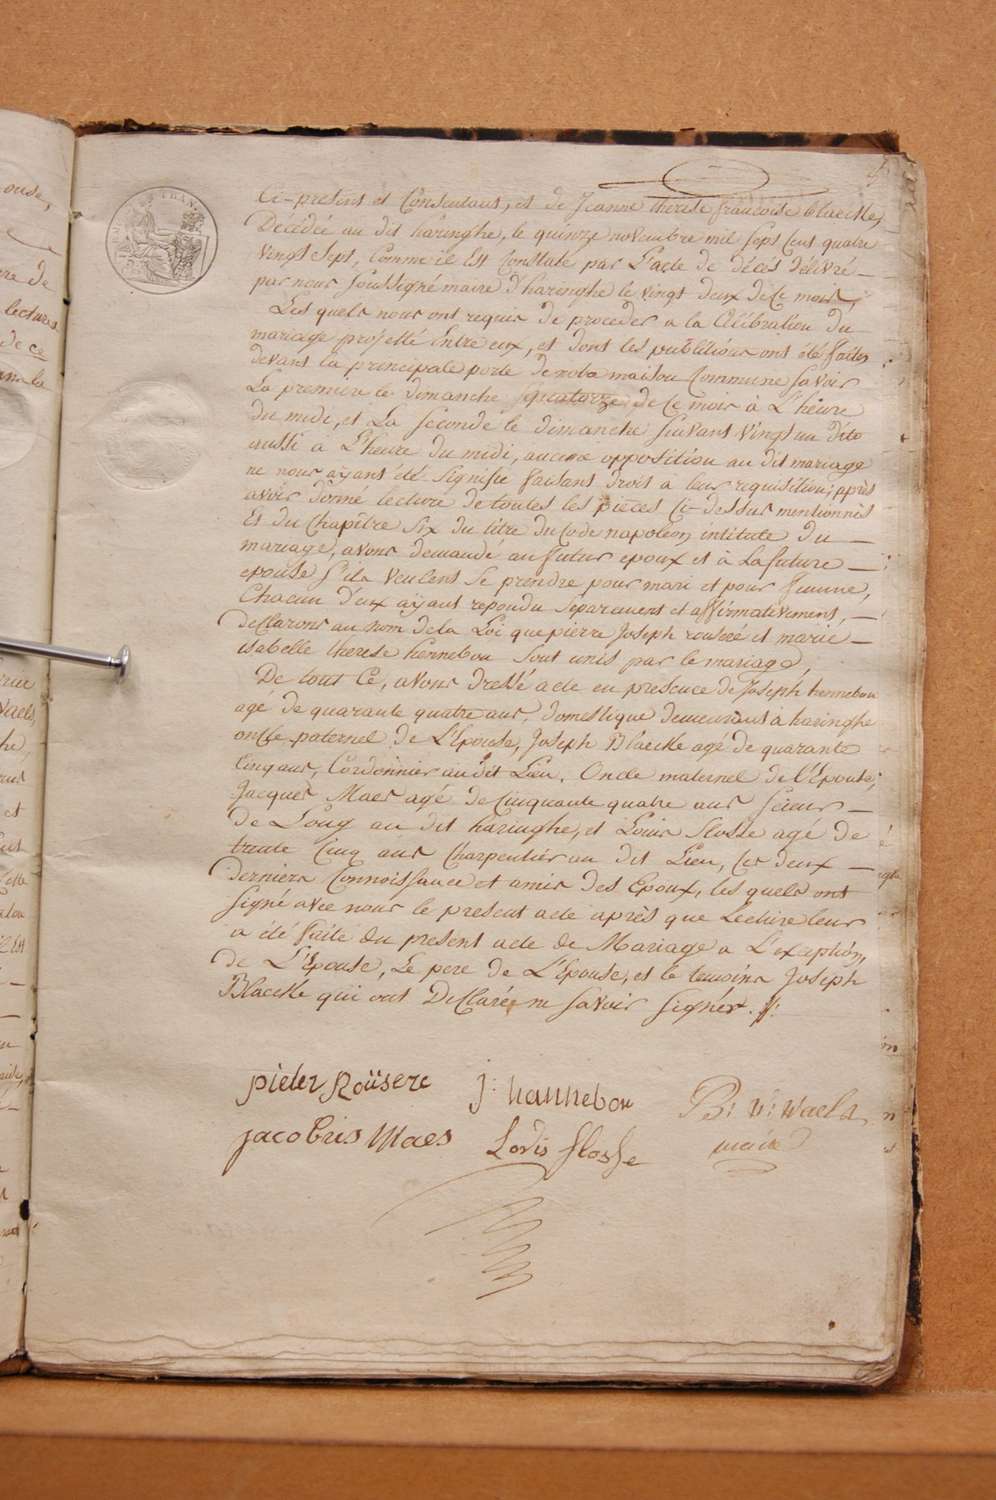 Ci-present et Consentant, et de Jeanne therese francoise blaecke,
Décédée au dit haringhe, le quinze novembre mil sept cent quatre
vingt sept, Comme il Est Constaté par l'acte de décés délivré —
par nous soussigné maire d'haringhe le vingt deux de Ce mois,
Les quels nous ont requis de proceder a la Célébration du
mariage projetté Entre eux, et dont les publications ont été faites
devant la principale porte de notre maison Commune savoir
La premiere le dimanche quatorze de Ce mois à L'heure
du midi, et La seconde le dimanche suivant vingt un dito
aussi à L'heure du midi, aucune opposition au dit mariage
ne nous aÿant été signifie faisant droit a leur requisition; après
avoir donné lecture de toutes les pièces Ci-dessus mentionnés
Et du Chapître six du titre du Code napoleon intitulé du —
mariage, avons demandé au futur epoux et à La future —
epouse s'ils veulent se prendre pour mari et pour femme,
Chacun d'eux aÿant repondu separement et affirmativement, —
declarons au nom de la Loi que pierre Joseph rouseré et marie —
isabelle therese hennebou sont unis par le mariage,
De tout Ce, avons dressé acte en presence de Joseph hennebou
agé de quarante quatre ans, domestique demeurant à haringhe
oncle paternel de L'Epouse, Joseph Blaecke agé de quarante
Cinq ans, Cordonnier au dit Lieu, Oncle maternel de l'Epouse;
Jacques Maes agé de Cinquante quatre ans scieur —
de Long au dit haringhe, et Louis Slosse agé de
trente Cinq ans Charpentier au dit Lieu, Ces deux —
derniers Connoissance et amis des Epoux, les quels ont
signé avec nous le present acte après que Lecture leur
a été faite du present acte de Mariage a L'exeption,
de L'Epouse, Le pere de L'Epouse, et le temoins Joseph
Blaecke qui ont Declarée ne savoir signér.
pieter Roüsere
J: hannebou
B: W: Waels
maire
jacobus Maes
Lovis slosse